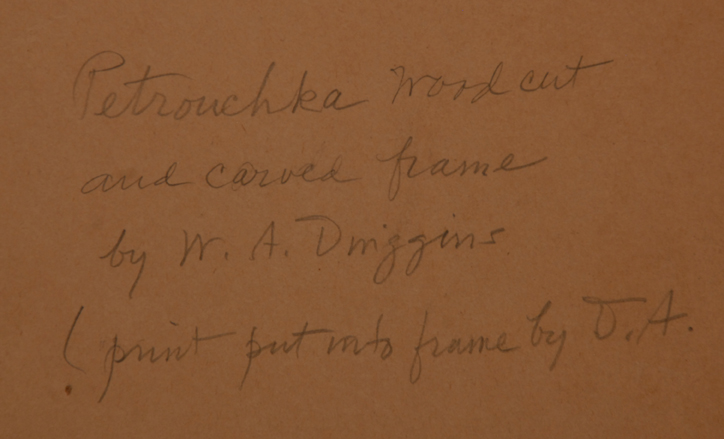 Petrouchka wood cut
and carved frame
by W. A. Dwiggins
( print put into frame by D. A.